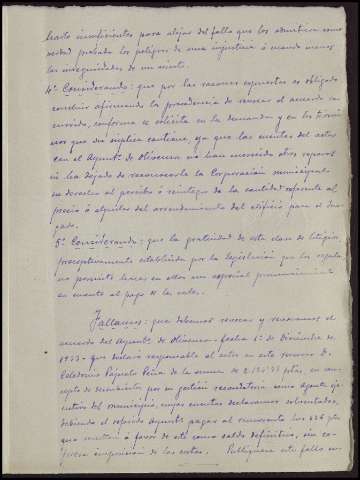 bante insuficientes para alejar del fallo que los admitiera como
verdad probada los peligros de una injusticia ó cuando menos
las inseguridades de un acierto.
4º Considerando: que por las razones expuestas es obligado
concluir afirmando la procedencia de revocar el acuerdo
currido, conforme se solicita en la demanda y en los térmi-
nos que su súplica contiene, ya que las cuentas del actor
con el Ayuntº. de Olivenza no han merecido otros reparos
ni ha dejado de reconocerle la Corporación municipal
su derecho al percibo ó reintegro de la cantidad referente al
precio ó alquiler del arrendamiento del edificio para el Juz-
gado.
5º Considerando: que la gratuidad de esta clase de litigios,
preceptivamente establecida por la legislación que los regula
no permite hacer en ellos un especial pronunciamiento
en cuanto al pago de las costas.
Fallamos: que debemos revocar y revocamos el
acuerdo del Ayuntº. de Olivenza, fecha 1º de Diciembre de
1933, que declaró responsable al actor en este recurso D.
Celedonio Peña de la suma de ptas, en con-
cepto de descubiertos por su gestión recaudatoria como Agente eje-
cutivo del municipio, cuyas cuentas declaramos solventadas,
debiendo el referido Ayuntº pagar al recurrente las 626 ptas
que resultan á favor de este como saldo definitivo, sin ex-
presa imposición de las costas. Publíquese este fallo en